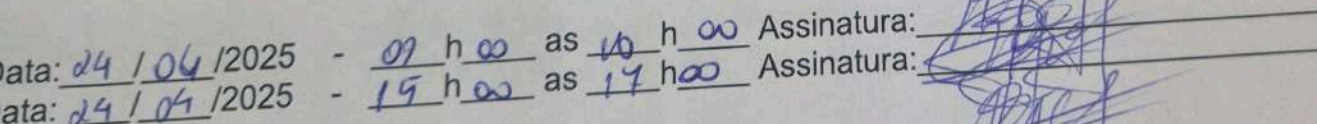 Data: 24 / 04 /2025 - 09 h 00 as 10 h 00 Assinatura:
ata: 24 / 04 /2025 - 15 h 00 as 17 h 00 Assinatura: